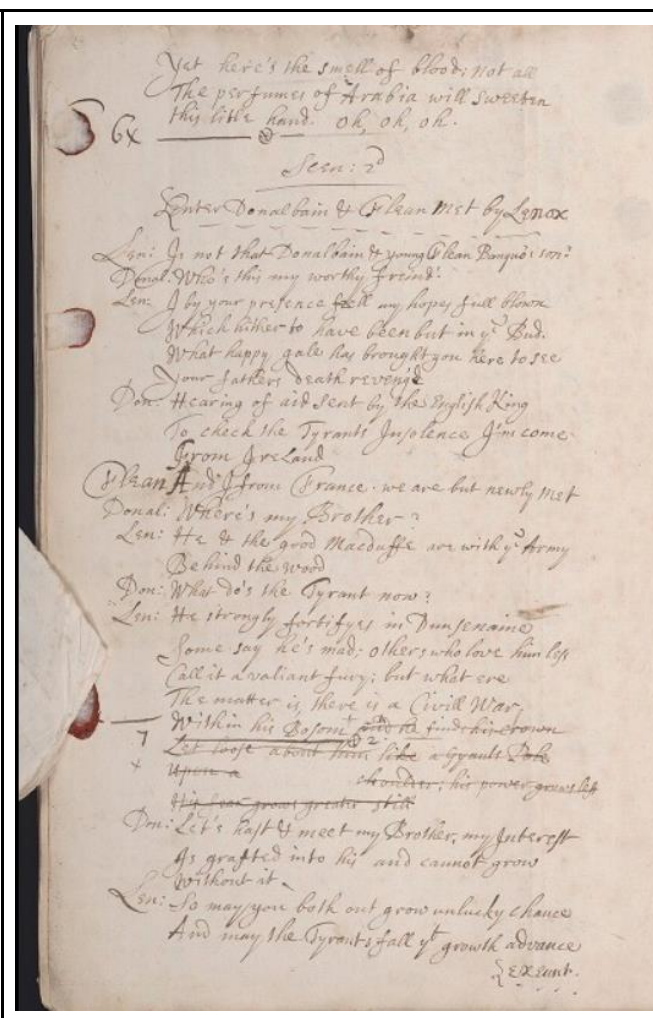 Yet here's the smell of blood; not all
The perfumes of Arabia will sweeten
this little hand. Oh, oh, oh.
6x
Scen: 2d
Enter Donalbain & Flean met by Lenox
Len: Is not that Donalbain & young Flean Banquo's son?
Donal: Who's this my worthy freind?
Len: I by your presence feell my hopes full blown
Which hither to have been but in ye Bud.
What happy gale has brought you here to see
Your fathers death reveng'd
Don: Hearing of aid sent by the English King
To check the Tyrants Insolence I'm come
From Ireland
Flean And I from France. we are but newly met
Donal: Where's my Brother?
Len: He & the good Macduffe are with ye Army
Behind the wood
Don: What do's the Tyrant now?
Len: He strongly fortifyes in Dunsenaine
Some say he's mad; others who love him less
Call it a valiant fury; but what ere
The matter is, there is a Civill War,
Within his Bosom and he finds his crown
7
Let loose about him like a Gyants Robe
2
x
Upon a his power grows less
His fear grows greater still
Don: Let's hast & meet my Brother, my Interest
Is grafted into his and cannot grow
Without it.
Len: So may you both out grow unlucky chance
And may the Tyrants fall yt growth advance
Exeunt.